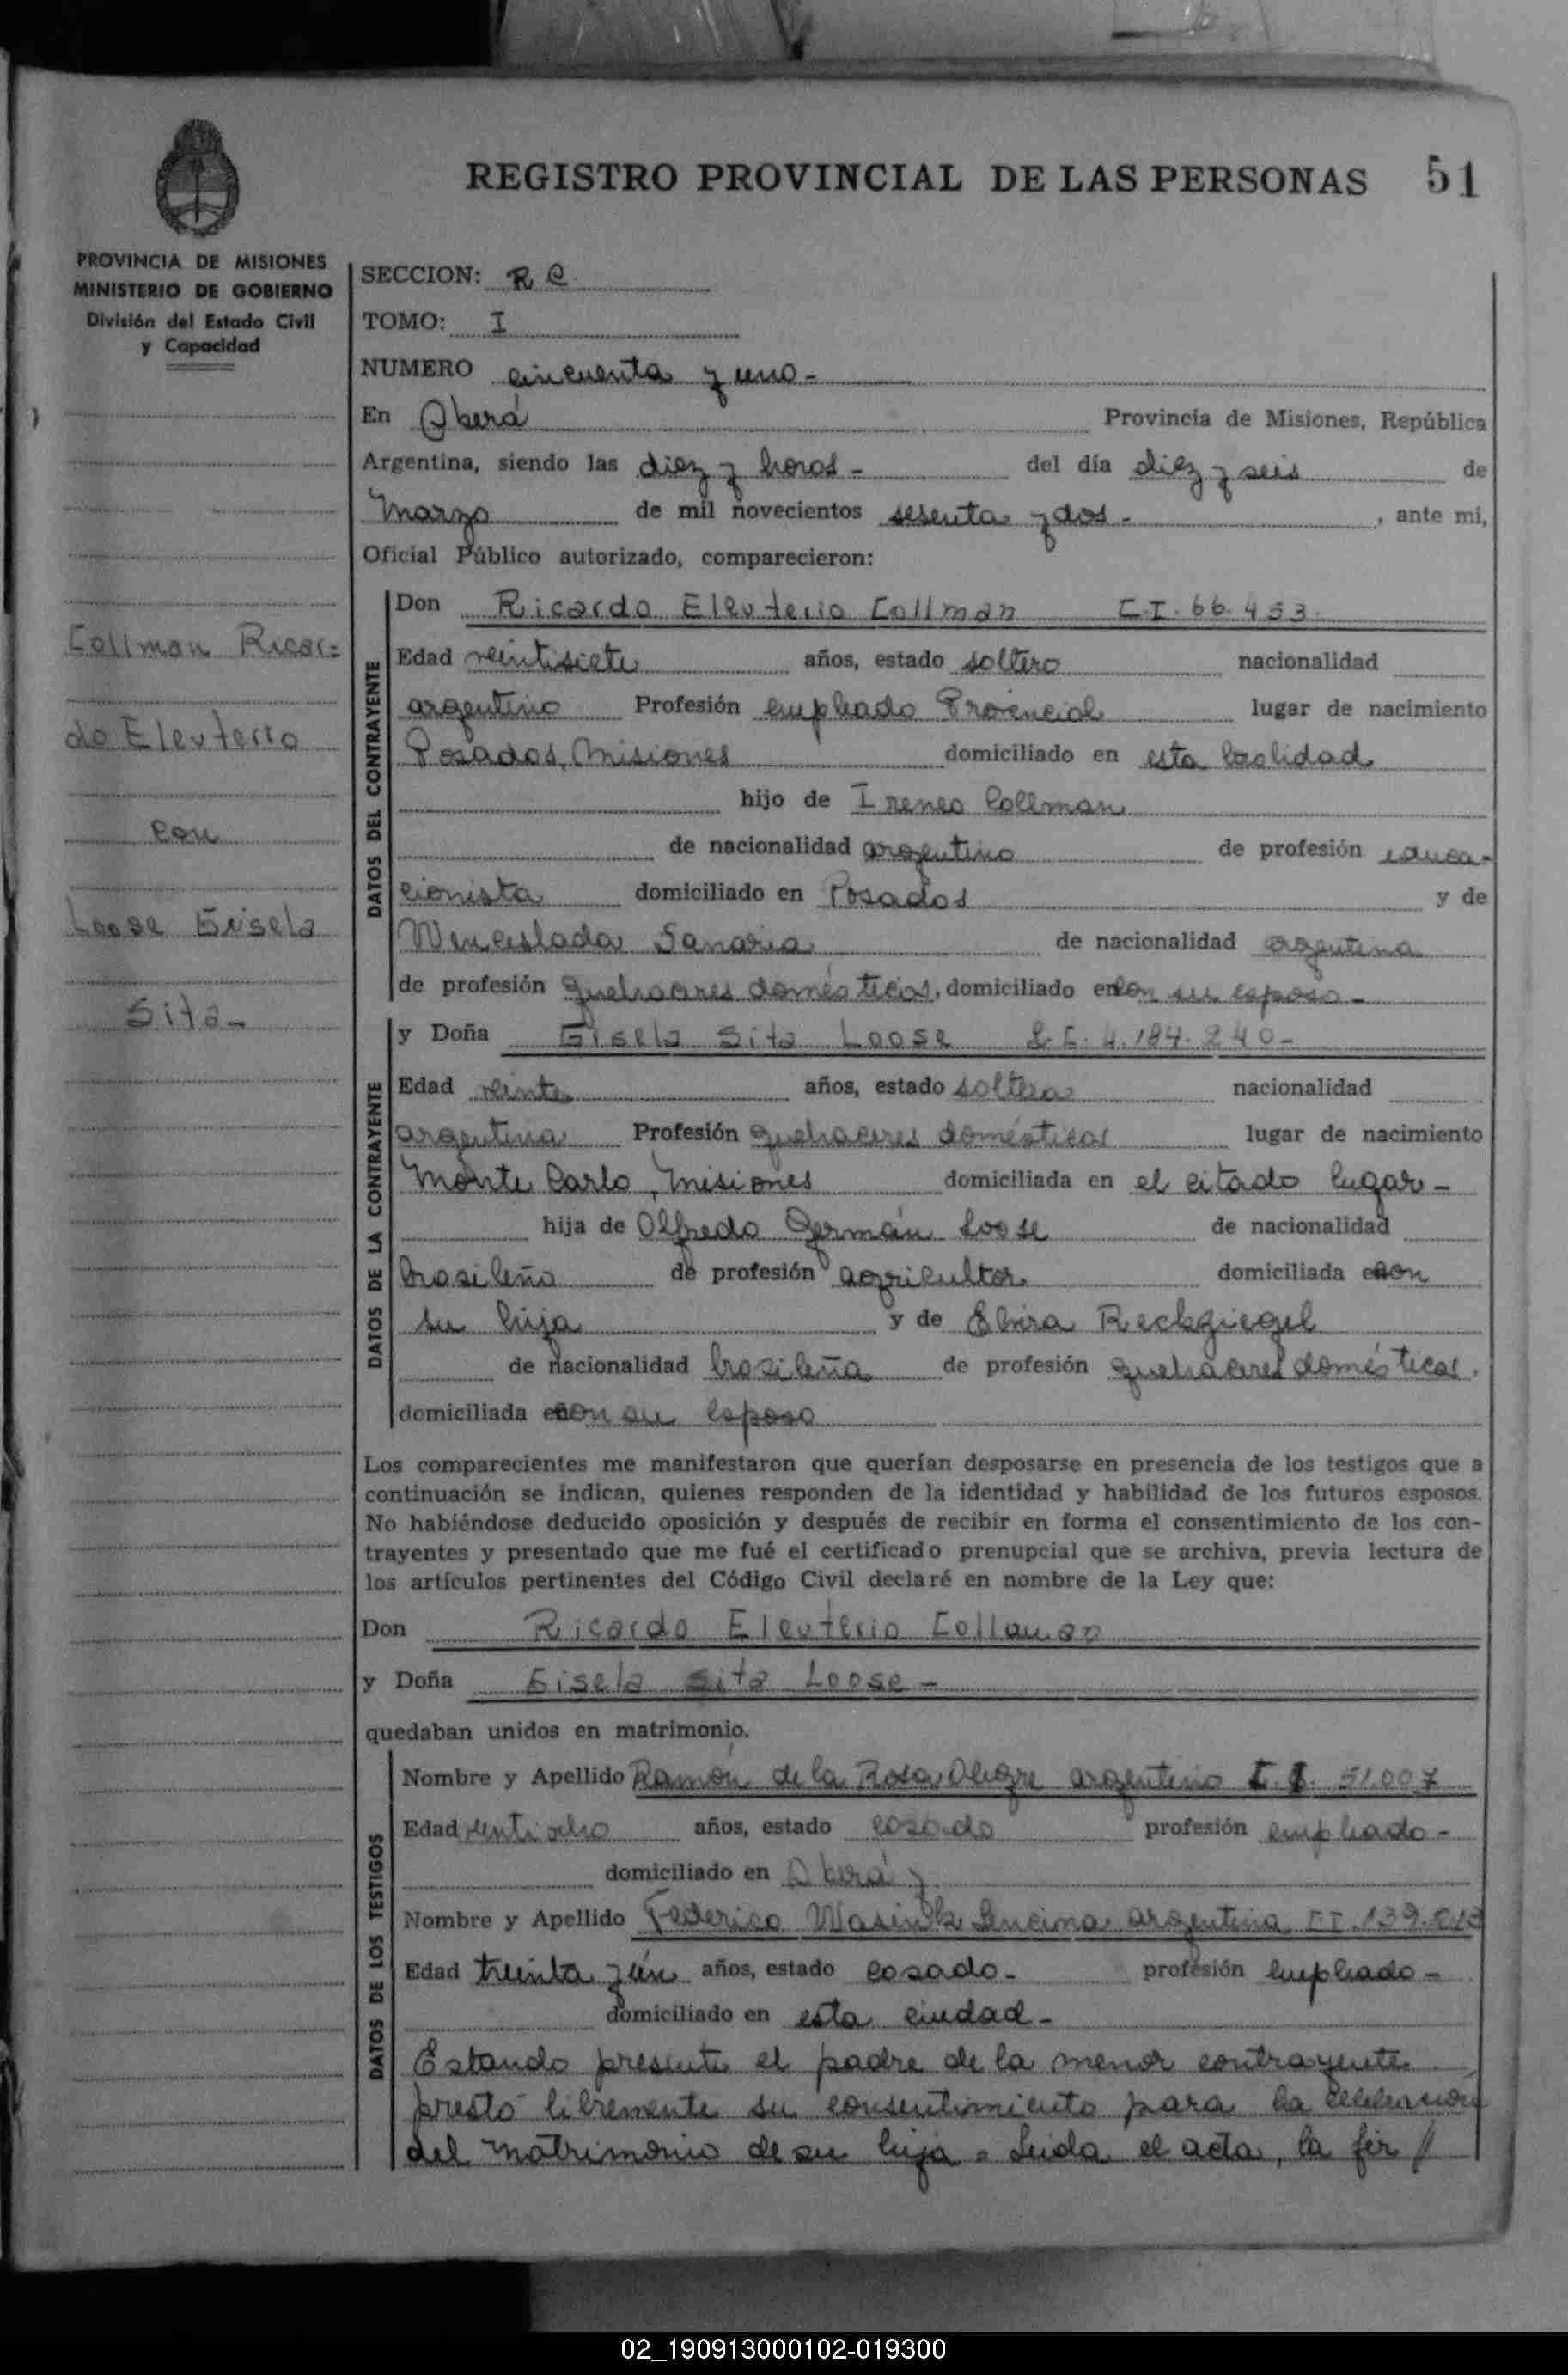 REGISTRO PROVINCIAL DE LAS PERSONAS 51
PROVINCIA DE MISIONES
MINISTERIO DE GOBIERNO
División del Estado Civil
y Capacidad
Collman Ricar=
do Eleuterio
con
Loose Gisela
Sita-
SECCION: R C.
TOMO: I
NUMERO cincuenta y uno-
En Oberá Provincia de Misiones, República
Argentina, siendo las diez y horas- del día diez y seis de
Marzo de mil novecientos sesenta y dos- , ante mi,
Oficial Público autorizado, comparecieron:
DATOS DEL CONTRAYENTE
Don Ricardo Eleuterio Collman C.I. 66.453.
Edad veintisiete años, estado soltero nacionalidad
argentino Profesión empleado Provincial lugar de nacimiento
Posadas, Misiones domiciliado en esta localidad
hijo de Ireneo Collman
de nacionalidad argentino de profesión educa-
cionista domiciliado en Posadas y de
Wenceslada Sanaria de nacionalidad argentina
de profesión quehaceres domésticos, domiciliado con su esposo-
DATOS DE LA CONTRAYENTE
y Doña Gisela Sita Loose L.C. 4.184.240-
Edad veinte años, estado soltera nacionalidad
argentina Profesión quehaceres domésticos lugar de nacimiento
Monte Carlo, Misiones domiciliada en el citado lugar-
hija de Olfredo Germán Loose de nacionalidad
brasileño de profesión agricultor domiciliada con
su hija y de Elvira Reckgiegel
de nacionalidad brasileña de profesión quehaceres domésticos,
domiciliada con su esposo
Los comparecientes me manifestaron que querían desposarse en presencia de los testigos que a
continuación se indican, quienes responden de la identidad y habilidad de los futuros esposos.
No habiéndose deducido oposición y después de recibir en forma el consentimiento de los con-
trayentes y presentado que me fué el certificado prenupcial que se archiva, previa lectura de
los artículos pertinentes del Código Civil declaré en nombre de la Ley que:
Don Ricardo Eleuterio Collman
y Doña Gisela Sita Loose-
quedaban unidos en matrimonio.
DATOS DE LOS TESTIGOS
Nombre y Apellido Ramón de la Rosa Alegre argentino C.I. 51.007
Edad ventiocho años, estado casado profesión empleado-
domiciliado en Oberá y
Nombre y Apellido Federico Encina argentina C.I. 139.
Edad treinta y un años, estado casado- profesión empleado-
domiciliado en esta ciudad-
Estando presente el padre de la menor contrayente
prestó libremente su consentimiento para la celebración
del matrimonio de su hija. Leida el acta, la fir //
02_190913000102-019300